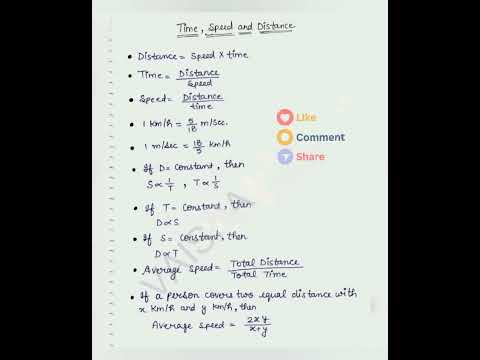 Time, Speed and Distance
• Distance = Speed × time
• Time = Distance / Speed
• Speed = Distance / time
• 1 km/h = 5/18 m/sec.
• 1 m/sec = 18/5 km/h
• If D = Constant, then
S ∝ 1/T , T ∝ 1/S
• If T = Constant, then
D ∝ S
• If S = Constant, then
D ∝ T
• Average Speed = Total Distance / Total Time
• If a person covers two equal distance with
x km/h and y km/h, then
Average speed = 2xy / x+y
Like
Comment
Share